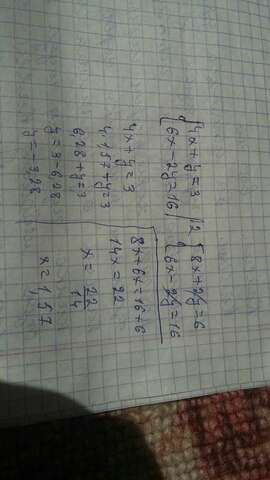 {4x+y=3 |2 {8x+2y=6
{6x-2y=16 {6x-2y=16
8x+6x=16+6
14x=22
x=22/14
x=1,57
4x+y=3
4·1,57+y=3
6,28+y=3
y=3-6,28
y=-3,28